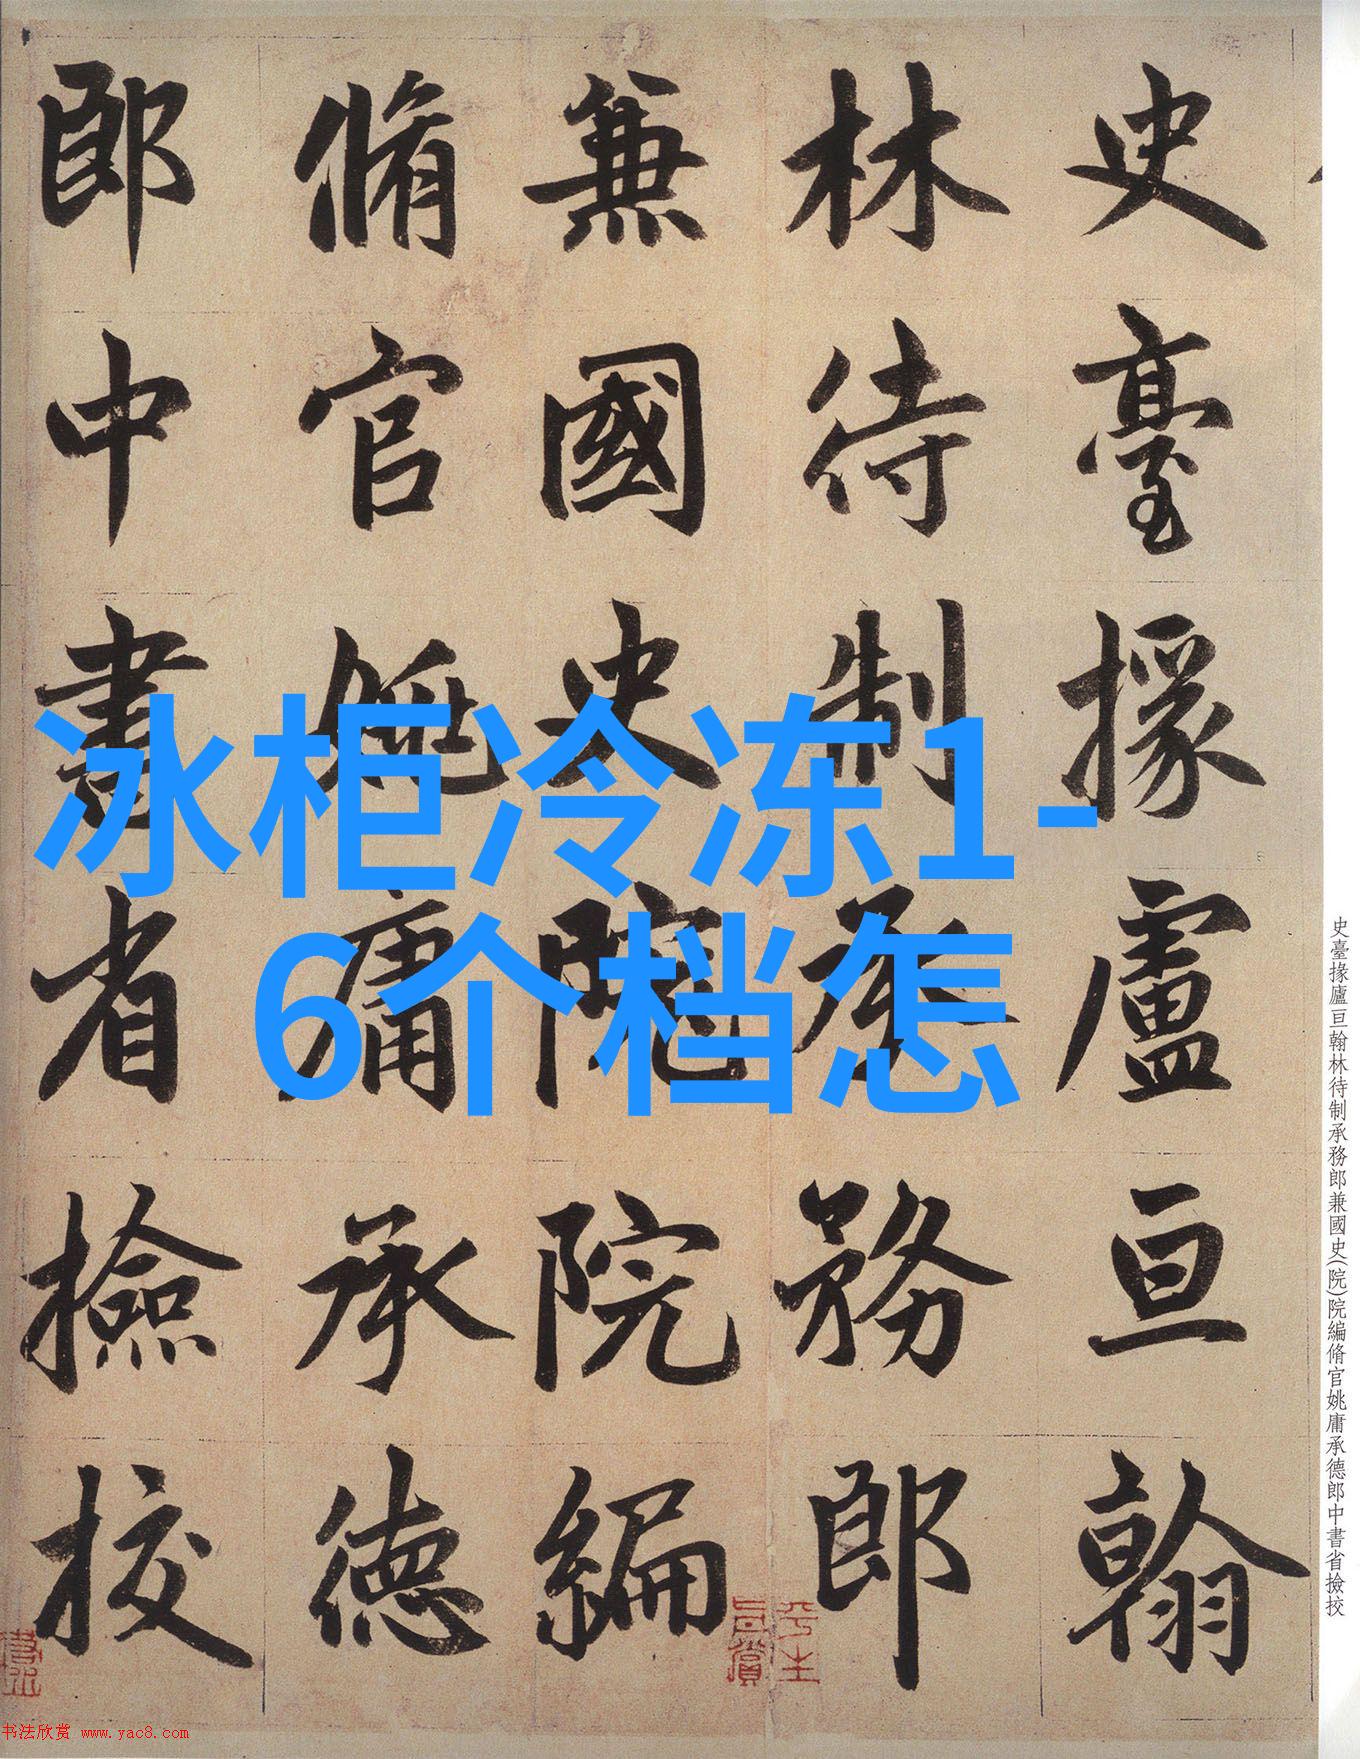 史臺掾盧亘翰
林待制承務郎
兼國史院院編
脩官姚庸承德
郎中書省撿挍
冰柜冷冻1-
6个档怎
史臺掾廬亘翰林待制承務郎兼國史(院)院編脩官姚庸承德郎中書省撿挍
平生
書法欣赏 www.yac8.com